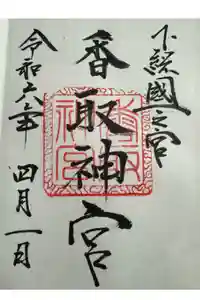 下総國一之宮
香取神宮
令和六年
四月一日